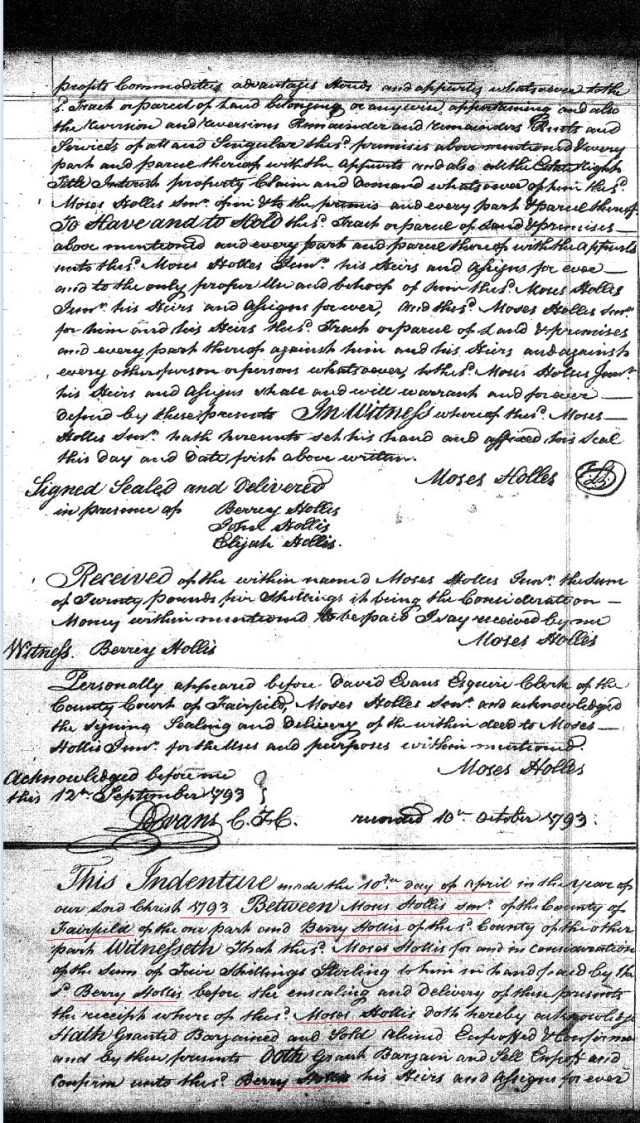 profits Commodities advantages Hords and appurts whatsoever to the
sd. Tract or parcel of Land belonging or any wise appertaining and also
the revirsion and reversions Remainder and remainders Rents and
Services of all and Singular the sd. premises above mentioned & every
part and parcel thereof with the appurts and also all the Estate right
Title Interest property Claim and demand whatsoever of him the sd.
Moses Holles Senr. of in & to the premis and every part & parcel thereof
To Have and to Hold the sd. Tract or parcel of Land & premises
above mentioned and every part and parcel thereof with the appurts
unto the sd. Moses Holles Junr. his Heirs and assigns for ever
and to the only proper Use and behoof of him the sd. Moses Hollis
Junr. his Heirs and assigns forever, and the sd. Moses Holles Senr.
for him and his Heirs the sd. Tract or parcel of Land & premises
and every part thereof against him and his Heirs and against
every other person or persons whatsoever, to the sd. Moses Hollis Junr.
his Heirs and Assigns shall and will warrant and forever
defend by these presents In Witness whereof the sd. Moses
Hollis Senr. hath hereunto set his hand and affixed his Seal
this day and date first above written.
Signed Sealed and Delivered Moses Holles
in presence of Berrey Hollis
John Hollis
Elijah Hollis.
Received of the within named Moses Hollis Junr. the Sum
of Twenty pounds five Shillings it being the Consideration
Money within mentioned to be paid I say received by me
Witness. Berrey Hollis Moses Hollis
Personally appeared before David Evans Esquire Clerk of the
County Court of Fairfield, Moses Holles Senr. and acknowledged
the signing Sealing and Delivery of the within deed to Moses
Hollis Junr. for the Uses and purposes within mentioned.
Acknowledged before me Moses Holles
this 12th. September 1793
D Evans C.F.C. recorded 10th October 1793.
This Indenture made the 10th. day of April in the year of
our Lord Christ 1793 Between Moses Hollis Senr. of the County of
Fairfield of the one part and Berry Hollis of the sd. County of the other
part Witnesseth that the sd. Moses Hollis for and in Consideration
of the Sum of Five Shillings Sterling to him in hand paid by the
sd. Berry Hollis before the ensealing and delivery of these presents
the receipt where of the sd. Moses Hollis doth hereby acknowledge
Hath Granted Bargained and Sold aliened Enfeoffed & Confirmed
and by these presents Doth Grant Bargain and Sell Enfeoff and
Confirm unto the sd. Berry Hollis his Heirs and Assigns forever